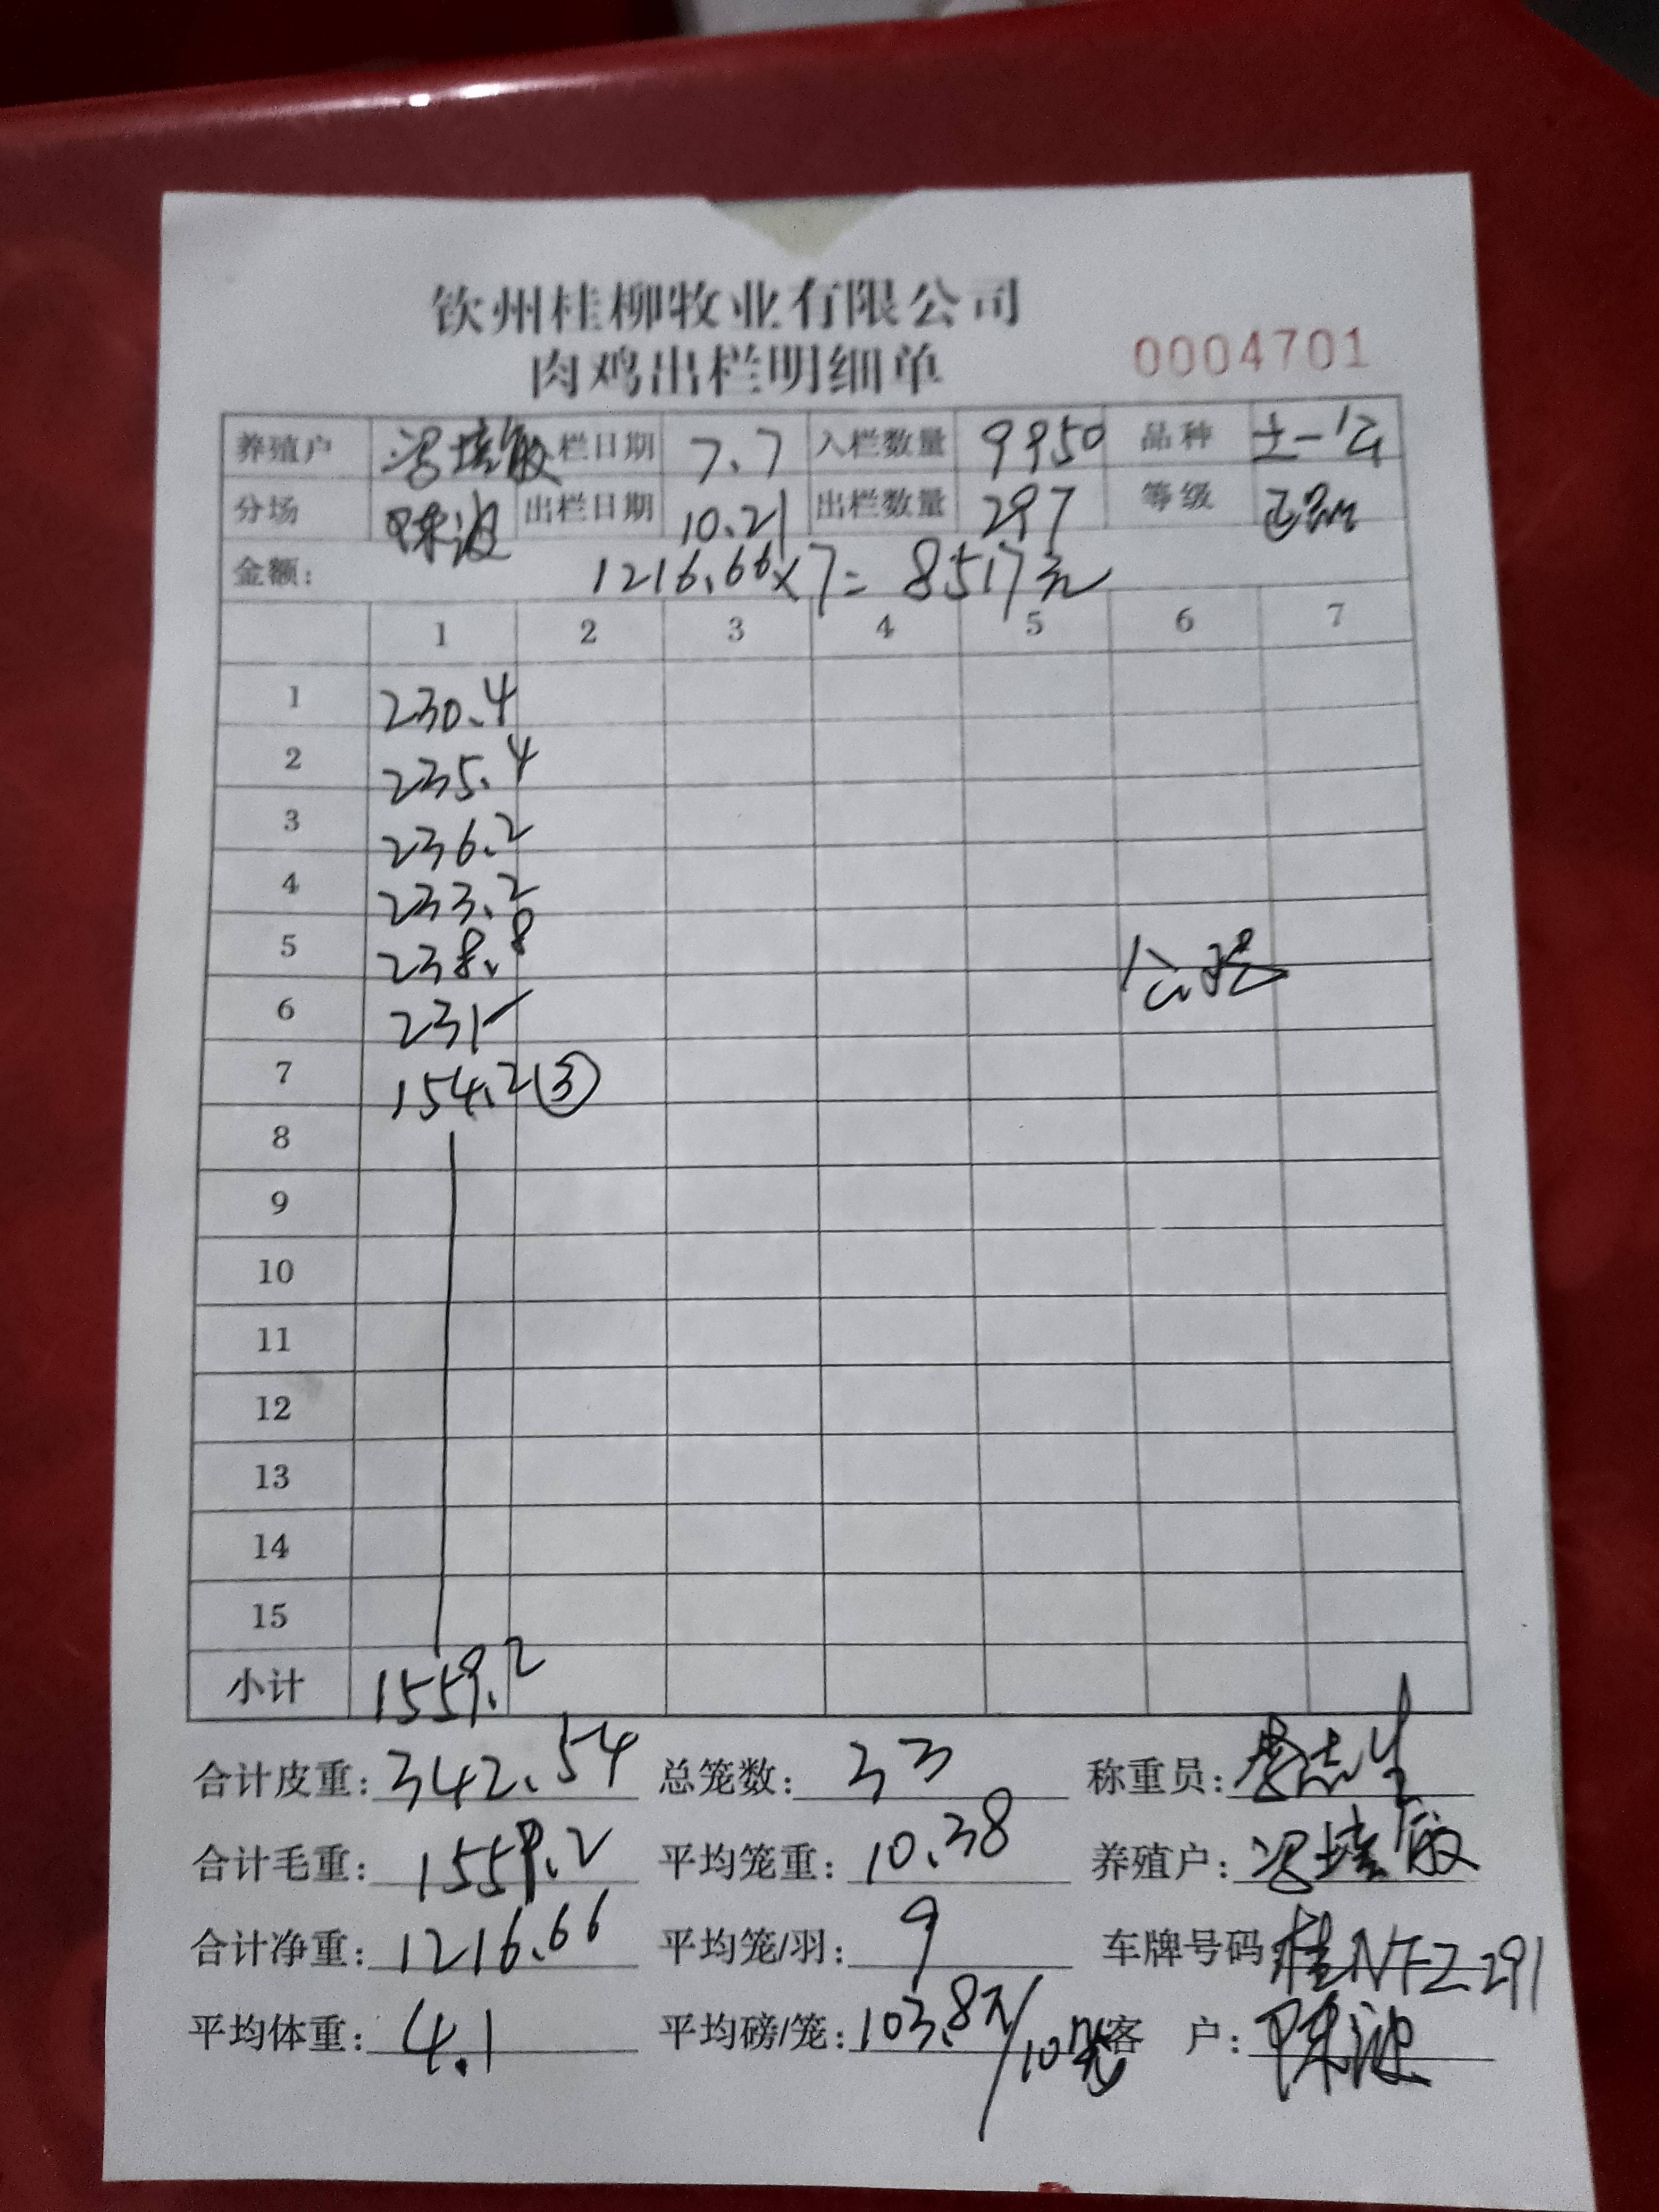 钦州桂柳牧业有限公司
肉鸡出栏明细单 0004701
养殖户 冯培敏 栏日期 7.7 入栏数量 9950 品种 土一公
分场 陈波 出栏日期 10.21 出栏数量 297 等级 正品
金额: 1216.66×7=8517元
1 2 3 4 5 6 7
1 230.4
2 235.4
3 236.2
4 233.2
5 238.8
6 231
7 154.2 ③
8
9
10
11
12
13
14
15
小计 1559.2
合计皮重: 342.54 总笼数: 33 称重员:
合计毛重: 1559.2 平均笼重: 10.38 养殖户: 冯培敏
合计净重: 1216.66 平均笼/羽: 9 车牌号码 桂NFZ291
平均体重: 4.1 平均磅/笼: 103.8斤/10笼 客户: 陈波